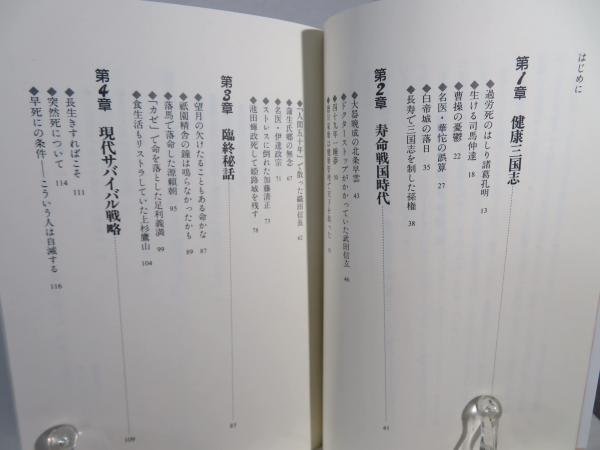 はじめに
第1章 健康三国志
◆過労死のはしり諸葛孔明 13
◆生ける司馬仲達 18
◆曹操の憂鬱 22
◆名医・華佗の誤算 27
◆白帝城の落日 35
◆長寿で三国志を制した孫権 38
第2章 寿命戦国時代 41
◆大器晩成の北条早雲 43
◆ドクターストップがかかっていた武田信玄 46
◆「人間五十年」で散った織田信長 62
◆蒲生氏郷の無念 67
◆名医・伊達政宗 71
◆ストレスに倒れた加藤清正 73
◆池田輝政死して姫路城を残す 78
第3章 臨終秘話 87
◆望月の欠けたることもある命かな 87
◆祇園精舎の鐘は鳴らなかったかも 89
◆落馬で落命した源頼朝 95
◆「カゼ」で命を落とした足利義満 99
◆食生活もリストラしていた上杉鷹山 104
第4章 現代サバイバル戦略 109
◆長生きすればこそ 111
◆突然死について 114
◆早死にの条件──こういう人は自滅する 116